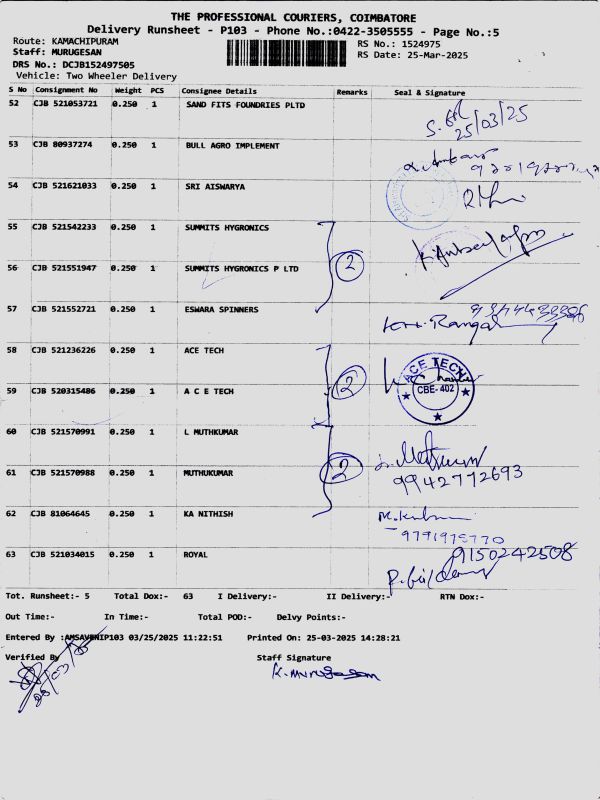 THE PROFESSIONAL COURIERS, COIMBATORE
Delivery Runsheet - P103 - Phone No.:0422-3505555 - Page No.:5
Route: KAMACHIPURAM
RS No.: 1524975
Staff: MURUGESAN
RS Date: 25-Mar-2025
DRS No.: DCJB152497505
Vehicle: Two Wheeler Delivery
S No Consignment No Weight PCS Consignee Details Remarks Seal & Signature
52 CJB 521053721 0.250 1 SAND FITS FOUNDRIES PLTD
25/03/25
53 CJB 80937274 0.250 1 BULL AGRO IMPLEMENT
54 CJB 521621033 0.250 1 SRI AISWARYA
55 CJB 521542233 0.250 1 SUMMITS HYGRONICS
2
56 CJB 521551947 0.250 1 SUMMITS HYGRONICS P LTD
57 CJB 521552721 0.250 1 ESWARA SPINNERS
58 CJB 521236226 0.250 1 ACE TECH
2
ACE TECH
CBE-402
59 CJB 520315486 0.250 1 A C E TECH
60 CJB 521570991 0.250 1 L MUTHKUMAR
2
61 CJB 521570988 0.250 1 MUTHUKUMAR
9942772693
62 CJB 81064645 0.250 1 KA NITHISH
9791975770
63 CJB 521034015 0.250 1 ROYAL
9150242508
Tot. Runsheet:- 5 Total Dox:- 63 I Delivery:- II Delivery:- RTN Dox:-
Out Time:- In Time:- Total POD:- Delvy Points:-
Entered By :AMSAVENIP103 03/25/2025 11:22:51 Printed On: 25-03-2025 14:28:21
Verified By
Staff Signature
K. Murugesan